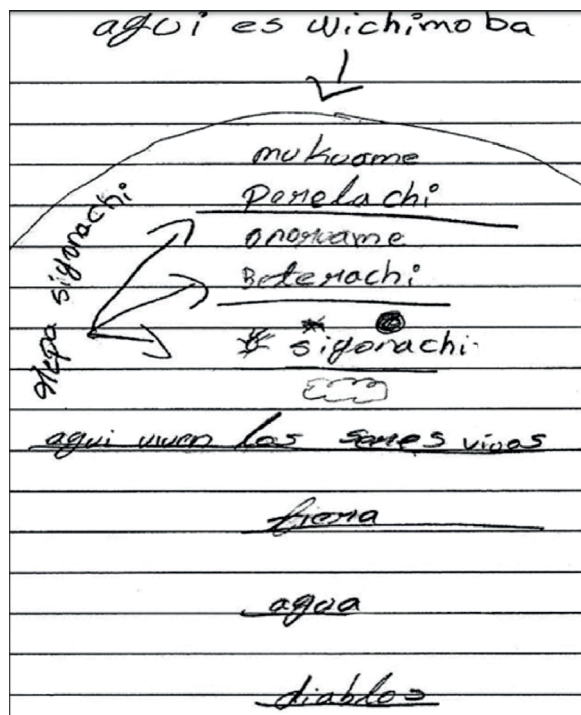 aqui es wichimoba
mukuame
Perelachi
onoruame
Beterachi
repa sigorachi
sigorachi
aqui viven los seres vivos
tiera
agua
diablos